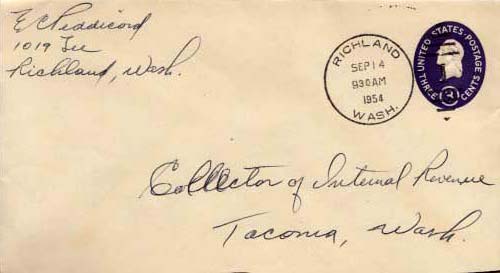 E C Peddicord
1019 Lee
Richland, Wash.
RICHLAND
SEP 14
930 AM
1954
WASH.
UNITED STATES POSTAGE
THREE 3 CENTS
Collector of Internal Revenue
Tacoma, Wash.